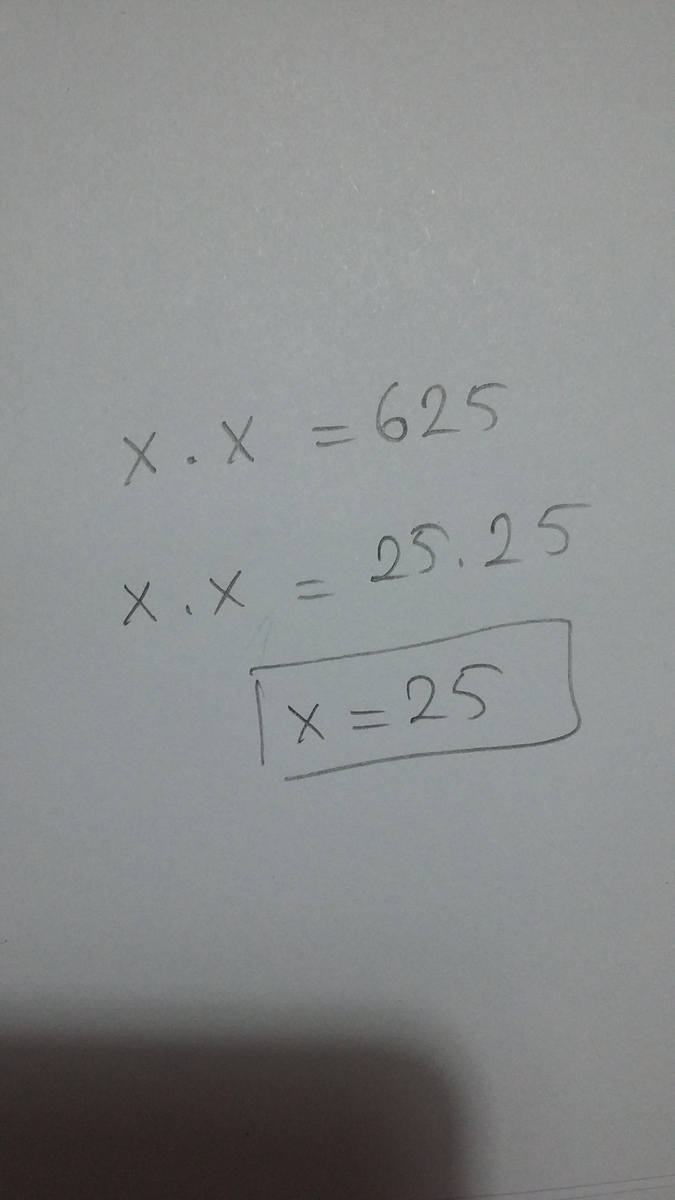 x . x = 625
x . x = 25 . 25
x = 25